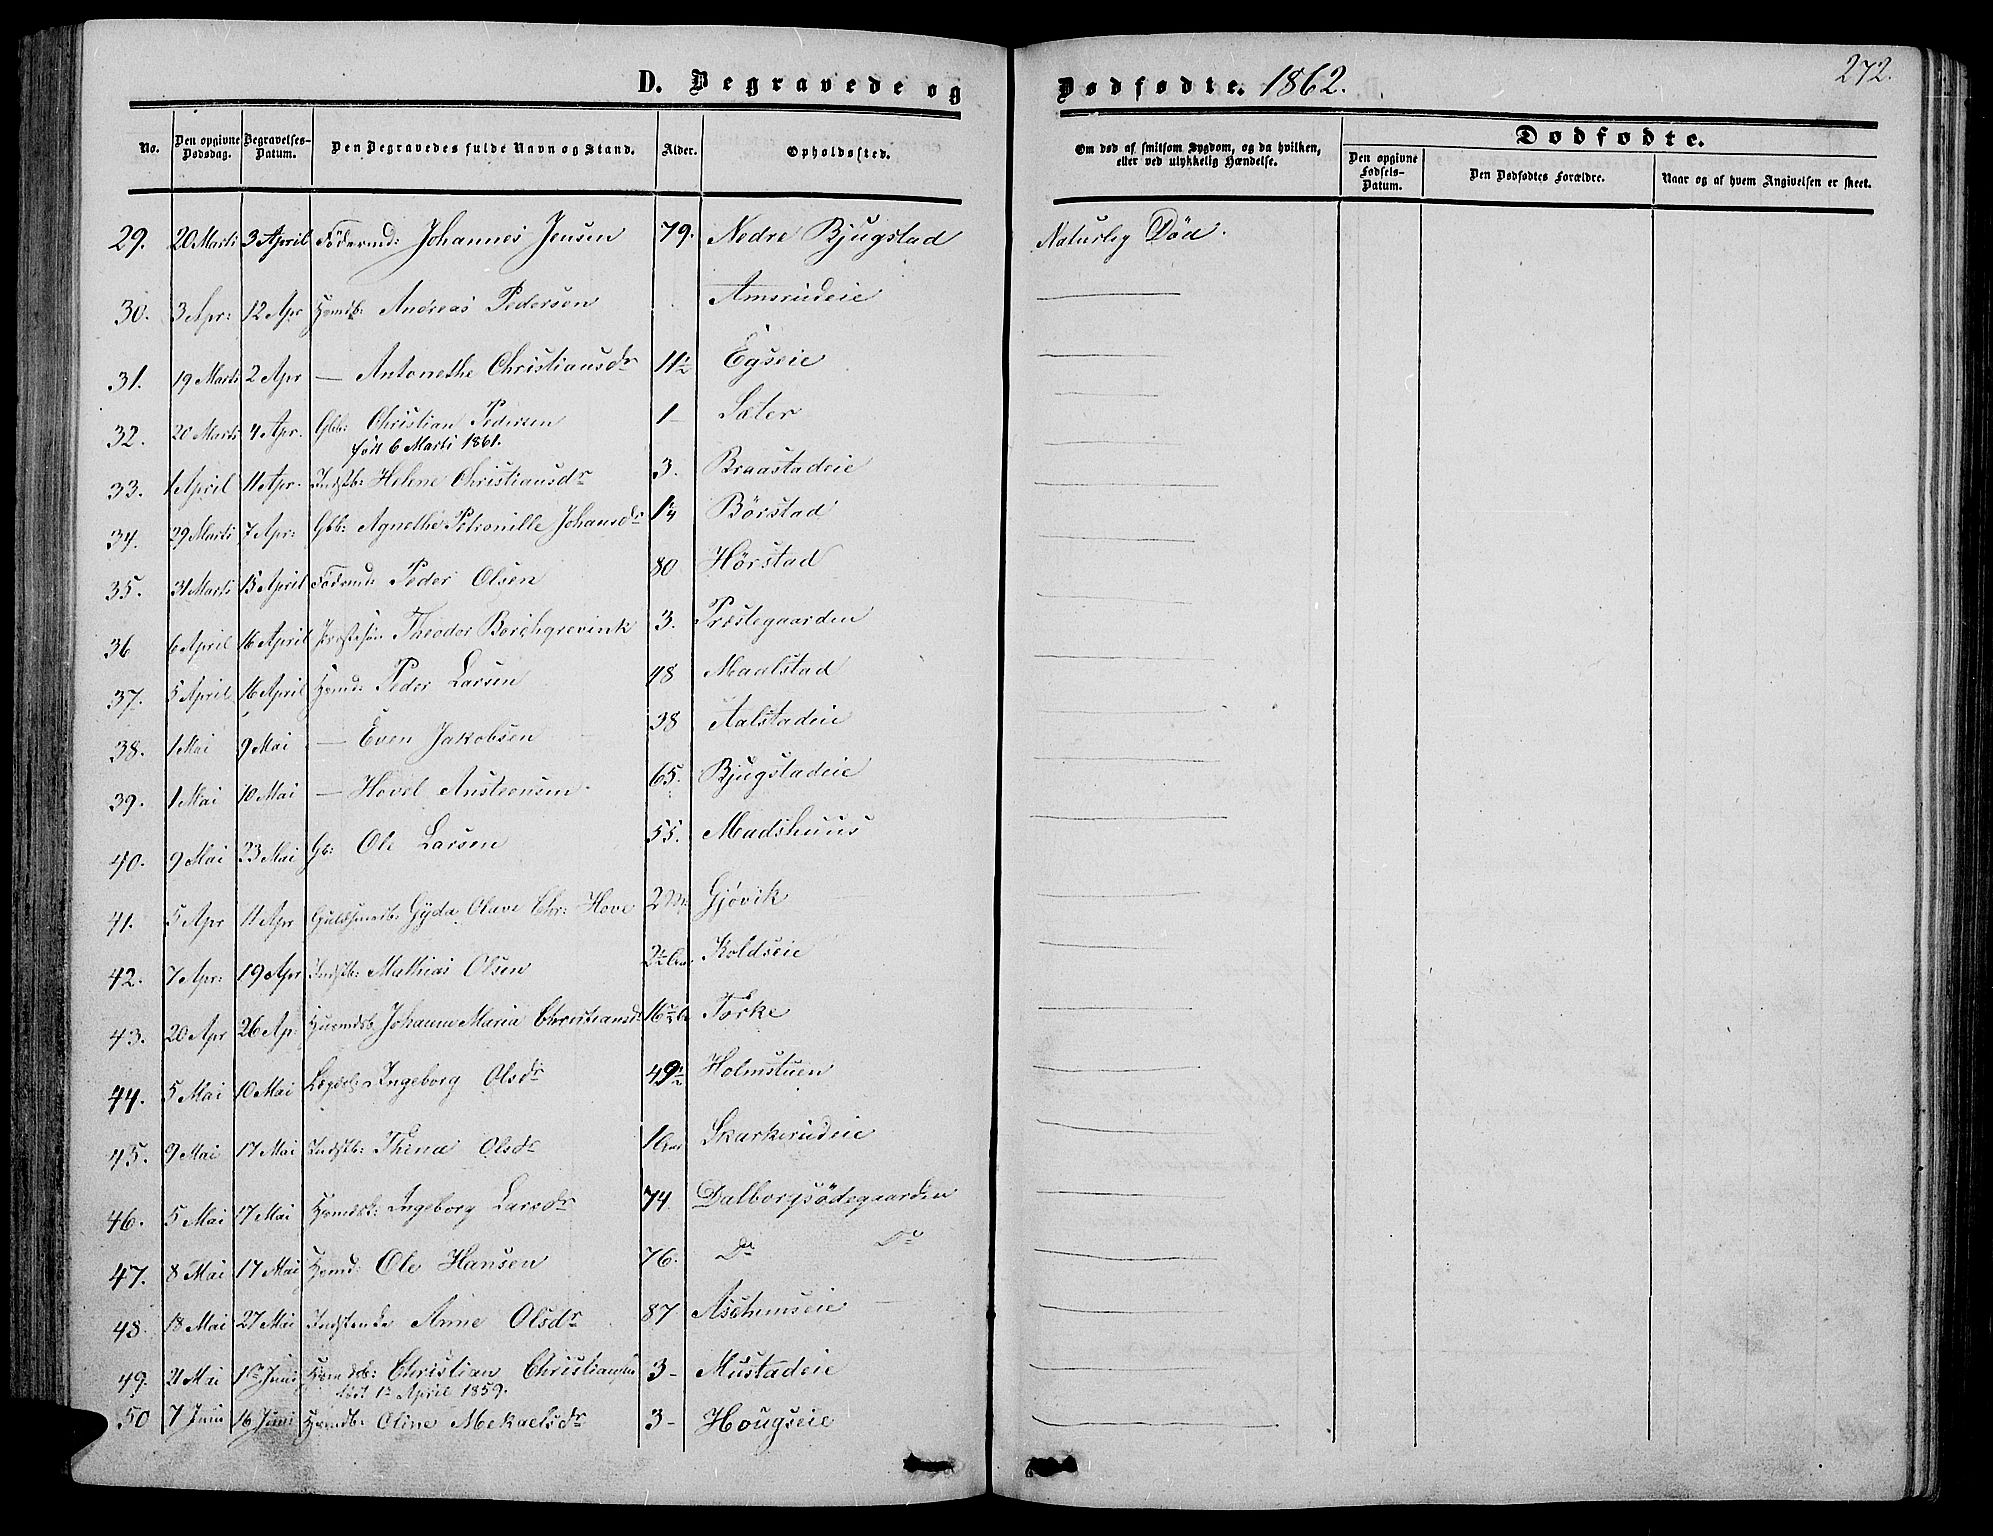 D. Begravede og Dødfødte. 1862.
272.
No. Den opgivne Dødsdag. Begravelses-Datum. Den Begravedes fulde Navn og Stand. Alder. Opholdssted. Om død af smitsom Sygdom, og da hvilken, eller ved ulykkelig Hændelse. Dødfødte.
Den opgivne Fødsels-Datum. Den Dødfødtes Forældre. Naar og af hvem Angivelsen er skeet.
29. 20 Marts 3 April Födermd: Johannes Jensen 79. Nedre Bjugstad Naturlig Död.
30. 3 Apr: 12 Apr Hsmdb: Andreas Pedersen Amsrudeie
31. 19 Marts 2 Apr — Antonethe Christiansdr 1 1/2 Egseie
32. 20 Marts 4 Apr. Gbb: Christian Pedersen 1 Sæter
föd 6 Marts 1861.
33. 1 April 11 Apr. Indstb: Helene Christiansdr 3. Braastadeie
34. 29 Marts 7 Apr: Gbb: Agnethe Petronille Johansdr 1/4 Börstad
35. 31 Marts 15 April Födermd: Peder Olsen 80 Hörstad
36 6 April 16 April Theodor Borchgrevink 3. Præstegaarden
37. 5 April 16 April Hsmd: Peder Larsen 48 Maalstad
38. 1 Mai 9 Mai — Even Jakobsen 38 Aalstadeie
39. 1 Mai 10 Mai — Hovel Austensen 65. Bjugstadeie
40. 9 Mai 23 Mai Gb: Ole Larsen 55. Madshuus
41. 5 Apr 11 Apr Guldsmedb: Gyda Olave Chr: Hove 2 Gjövik
42. 7 Apr: 19 Apr Indstb: Mathias Olsen 2 1/2 Koldseie
43. 20 Apr 26 Ap: Johanne Maria Christiansdr 16 Torke
44. 5 Mai 10 Mai Lægdsl: Ingeborg Olsdr 49 1/2 Holmstuen
45. 9 Mai 17 Mai Indstb: Thina Olsdr 1 Skarkerudeie
46. 5 Mai 17 Mai Hsmdsk: Ingeborg Larsdr 74. Dalborgsödegaarden
47. 8 Mai 17 Mai Hsmd: Ole Hansen 76. Do Do
48. 18 Mai 27 Mai Indstenke Anne Olsdr 87 Aschimseie
49. 21 Mai 1 Juni Hsmdsb: Christian Christiansen 3 - Mustadeie
födt 12 April 1859.
50 7 Juni 16 Juni Hsmdb: Oline Mekaelsdr 3 - Hougseie